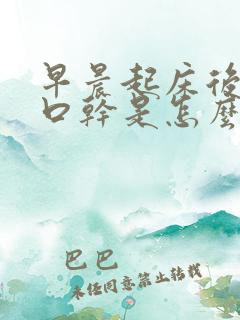 早晨起床後
口幹是怎麼
巴巴
未经同意禁止转载